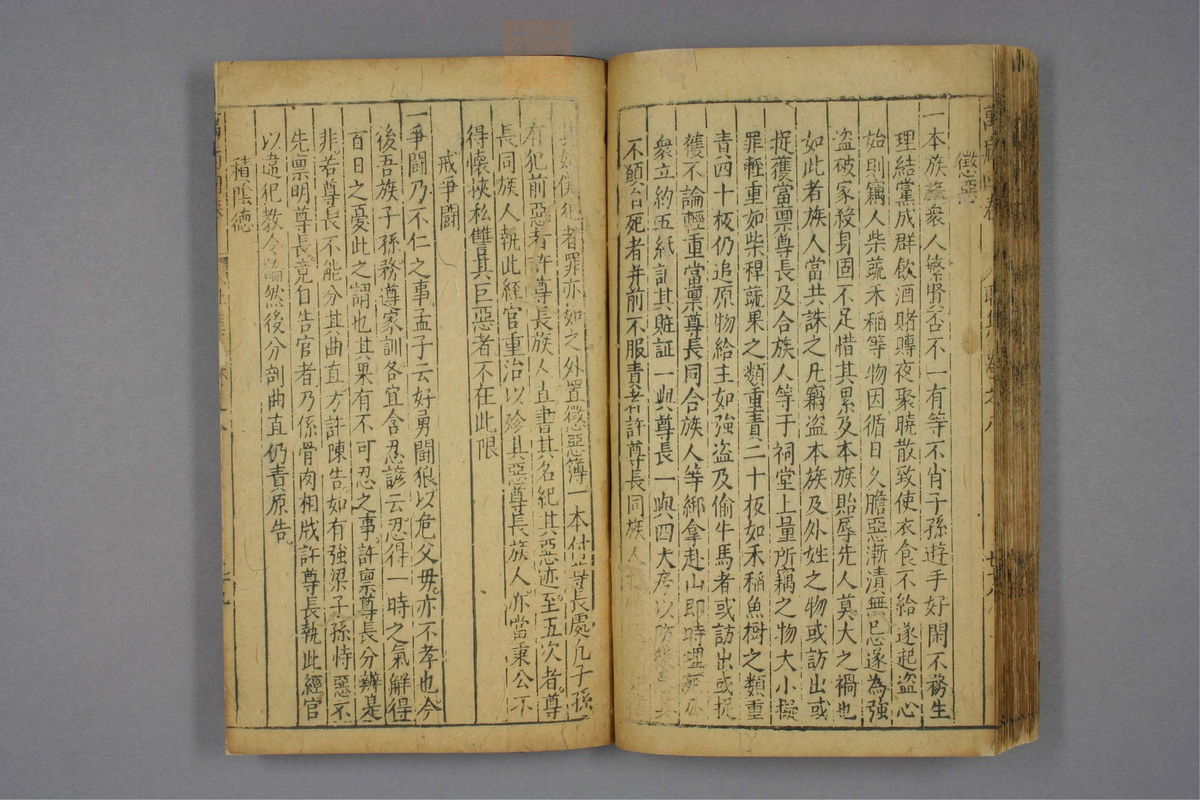 懲惡
一本族蕃衆人繁賢否不一有等不肖子孫遊手好閑不務生
理結黨成群飲酒賭賻夜聚曉散致使衣食不給遂起盜心
始則竊人柴蔬禾稻等物因循日久膽惡漸漬無忌遂為強
盜破家殺身固不足惜其累及本族貽辱先人莫大之禍也
如此者族人當共誅之凡竊盜本族及外姓之物或訪出或
捉獲當禀尊長及合族人等于祠堂上量所竊之物大小擬
罪輕重如柴稈蔬果之類重責二十板如禾稻魚樹之類重
責四十板仍追原物給主如強盜及偷牛馬者或訪出或捉
獲不論輕重當禀尊長同合族人等綁拿赴山即時埋死仍
衆立約五紙訂其賍証一與尊長一與四大房以防後
不願合死者并前不服責者許尊長同族人
者罪亦如之外置懲惡簿一本付尊長處凡子孫
有犯前惡者許尊長族人直書其名紀其惡迹至五次者尊
長同族人執此經官重治以殄其惡尊長族人亦當秉公不
得懷挾私讐其巨惡者不在此限
戒爭鬪
一爭鬪乃不仁之事孟子云好勇鬪狠以危父母亦不孝也今
後吾族子孫務尊家訓各宜含忍諺云忍得一時之氣解得
百日之憂此之謂也其果有不可忍之事許禀尊長分辨是
非若尊長不能分其曲直方許陳告如有強梁子孫恃惡不
先禀明尊長竟自告官者乃係骨肉相戕許尊長執此經官
以違犯教令論然後分剖曲直仍責原告
積陰德